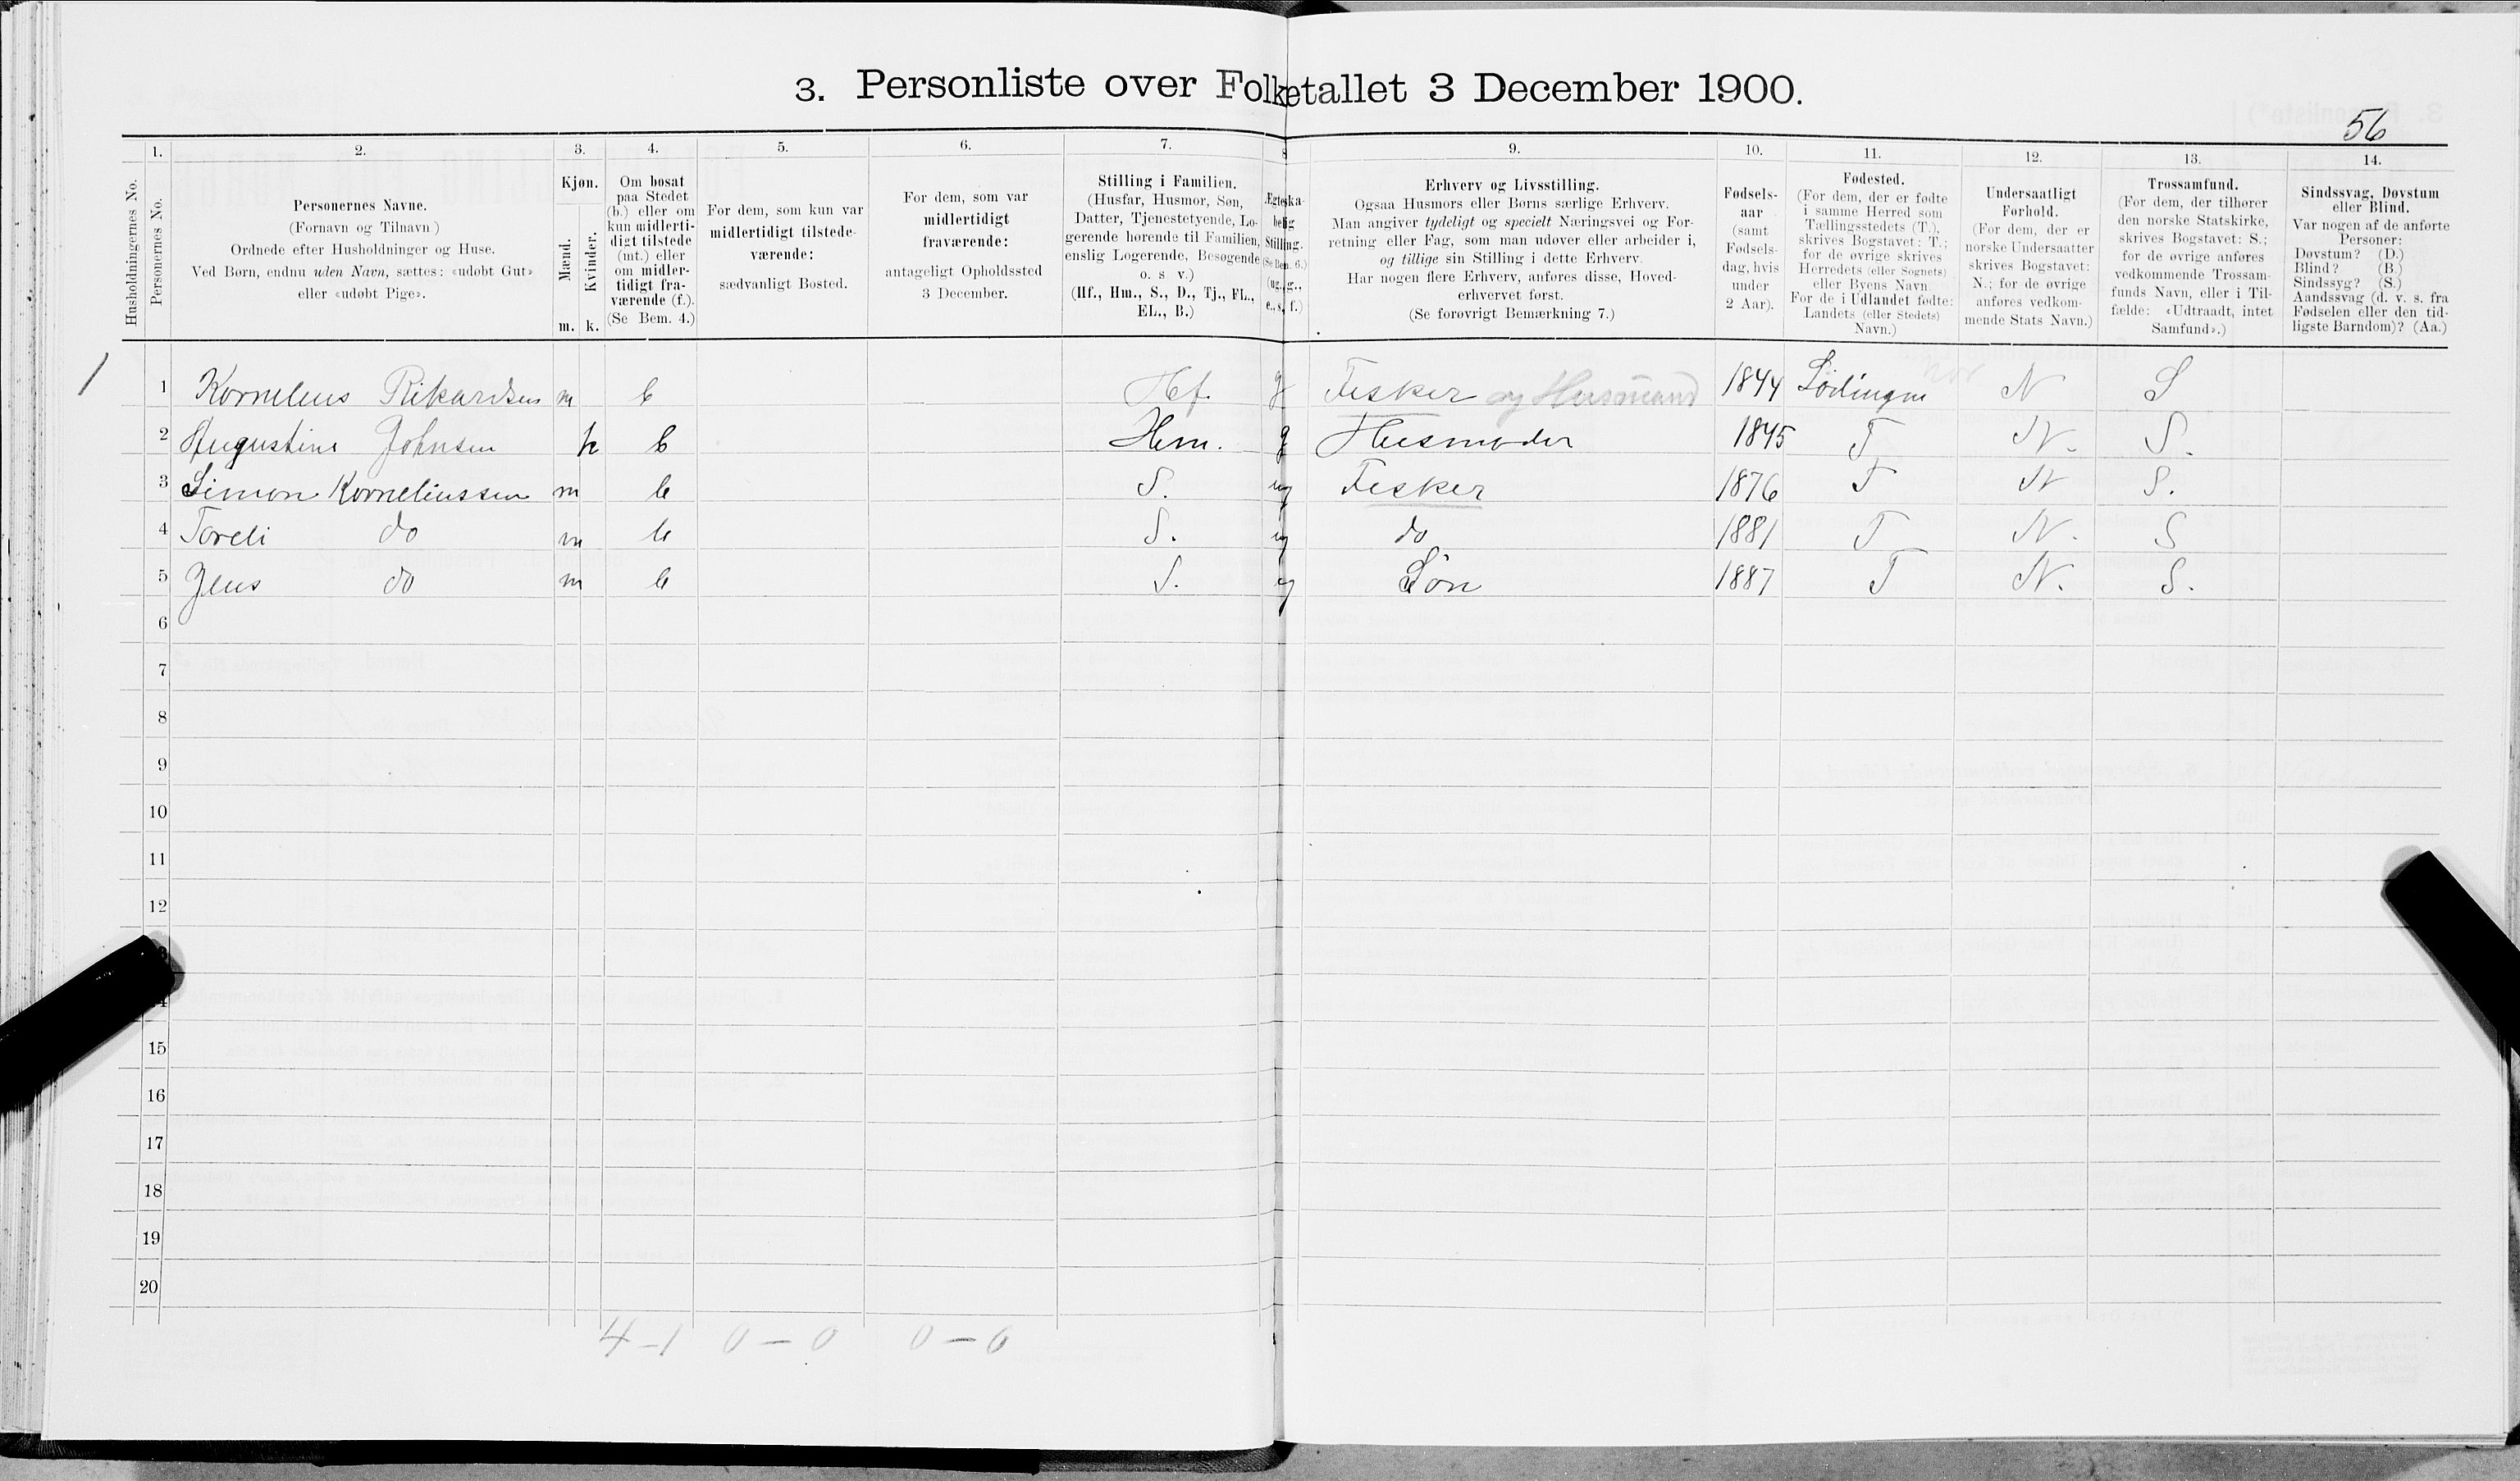 3. Personliste over Folketallet 3 December 1900.
56
1. 2. 3. 4. 5. 6. 7. 8 9. 10. 11. 12. 13. 14.
Husholdningernes No.
Personernes No.
Personernes Navne.
(Fornavn og Tilnavn)
Ordnede efter Husholdninger og Huse.
Ved Børn, endnu uden Navn, sættes: «udøbt Gut»
eller «udøbt Pige».
Kjøn.
Mænd.
Kvinder.
m. k.
Om bosat
paa Stedet
(b.) eller om
kun midlerti-
digt tilstede
(mt.) eller
om midler-
tidigt fra-
værende (f.).
(Se Bem. 4.)
For dem, som kun var
midlertidigt tilstede-
værende:
sædvanligt Bosted.
For dem, som var
midlertidigt
fraværende:
antageligt Opholdssted
3 December.
Stilling i Familien.
(Husfar, Husmor, Søn,
Datter, Tjenestetyende, Lo-
gerende hørende til Familien,
enslig Logerende, Besøgende
o. s v.)
(Hf., Hm., S., D., Tj., FL.,
EL., B.)
Ægteska-
belig
Stilling.
(Se Bem. 6.)
(ug., g.,
e., s., f.)
Erhverv og Livsstilling.
Ogsaa Husmors eller Børns særlige Erhverv.
Man angiver tydeligt og specielt Næringsvei og For-
retning eller Fag, som man udøver eller arbeider i,
og tillige sin Stilling i dette Erhverv.
Har nogen flere Erhverv, anføres disse, Hoved-
erhvervet først.
(Se forøvrigt Bemærkning 7.)
Fødsels-
aar
(samt
Fødsels-
dag, hvis
under
2 Aar).
Fødested.
(For dem, der er fødte
i samme Herred som
Tællingsstedets (T.),
skrives Bogstavet: T.;
for de øvrige skrives
Herredets (eller Sognets)
eller Byens Navn.
For de i Udlandet fødte:
Landets (eller Stedets)
Navn.)
Undersaatligt
Forhold.
(For dem, der er
norske Undersaatter
skrives Bogstavet:
N.; for de øvrige
anføres vedkom-
mende Stats Navn.)
Trossamfund.
(For dem, der tilhører
den norske Statskirke,
skrives Bogstavet: S.;
for de øvrige anføres
vedkommende Trossam-
funds Navn, eller i Til-
fælde: «Udtraadt, intet
Samfund».)
Sindssvag, Døvstum
eller Blind.
Var nogen af de anførte
Personer:
Døvstum? (D.)
Blind? (B.)
Sindssyg? (S.)
Aandssvag (d. v. s. fra
Fødselen eller den tid-
ligste Barndom)? (Aa.)
1 1 Kornelius Rikardsen m b Hf. g Fisker og Husmand 1844 Lødingen N S
2 Augustine Johnsen k b Hm. g Husmoder 1845 T N. S.
3 Simon Korneliussen m b S. ug Fisker 1876 T N S.
4 Toreli do m b S. ug do 1881 T N. S
5 Jens do m b S. ug Søn 1887 T N. S.
6
7
8
9
10
11
12
15
16
17
18
19
20
4-1 0-0 0-0